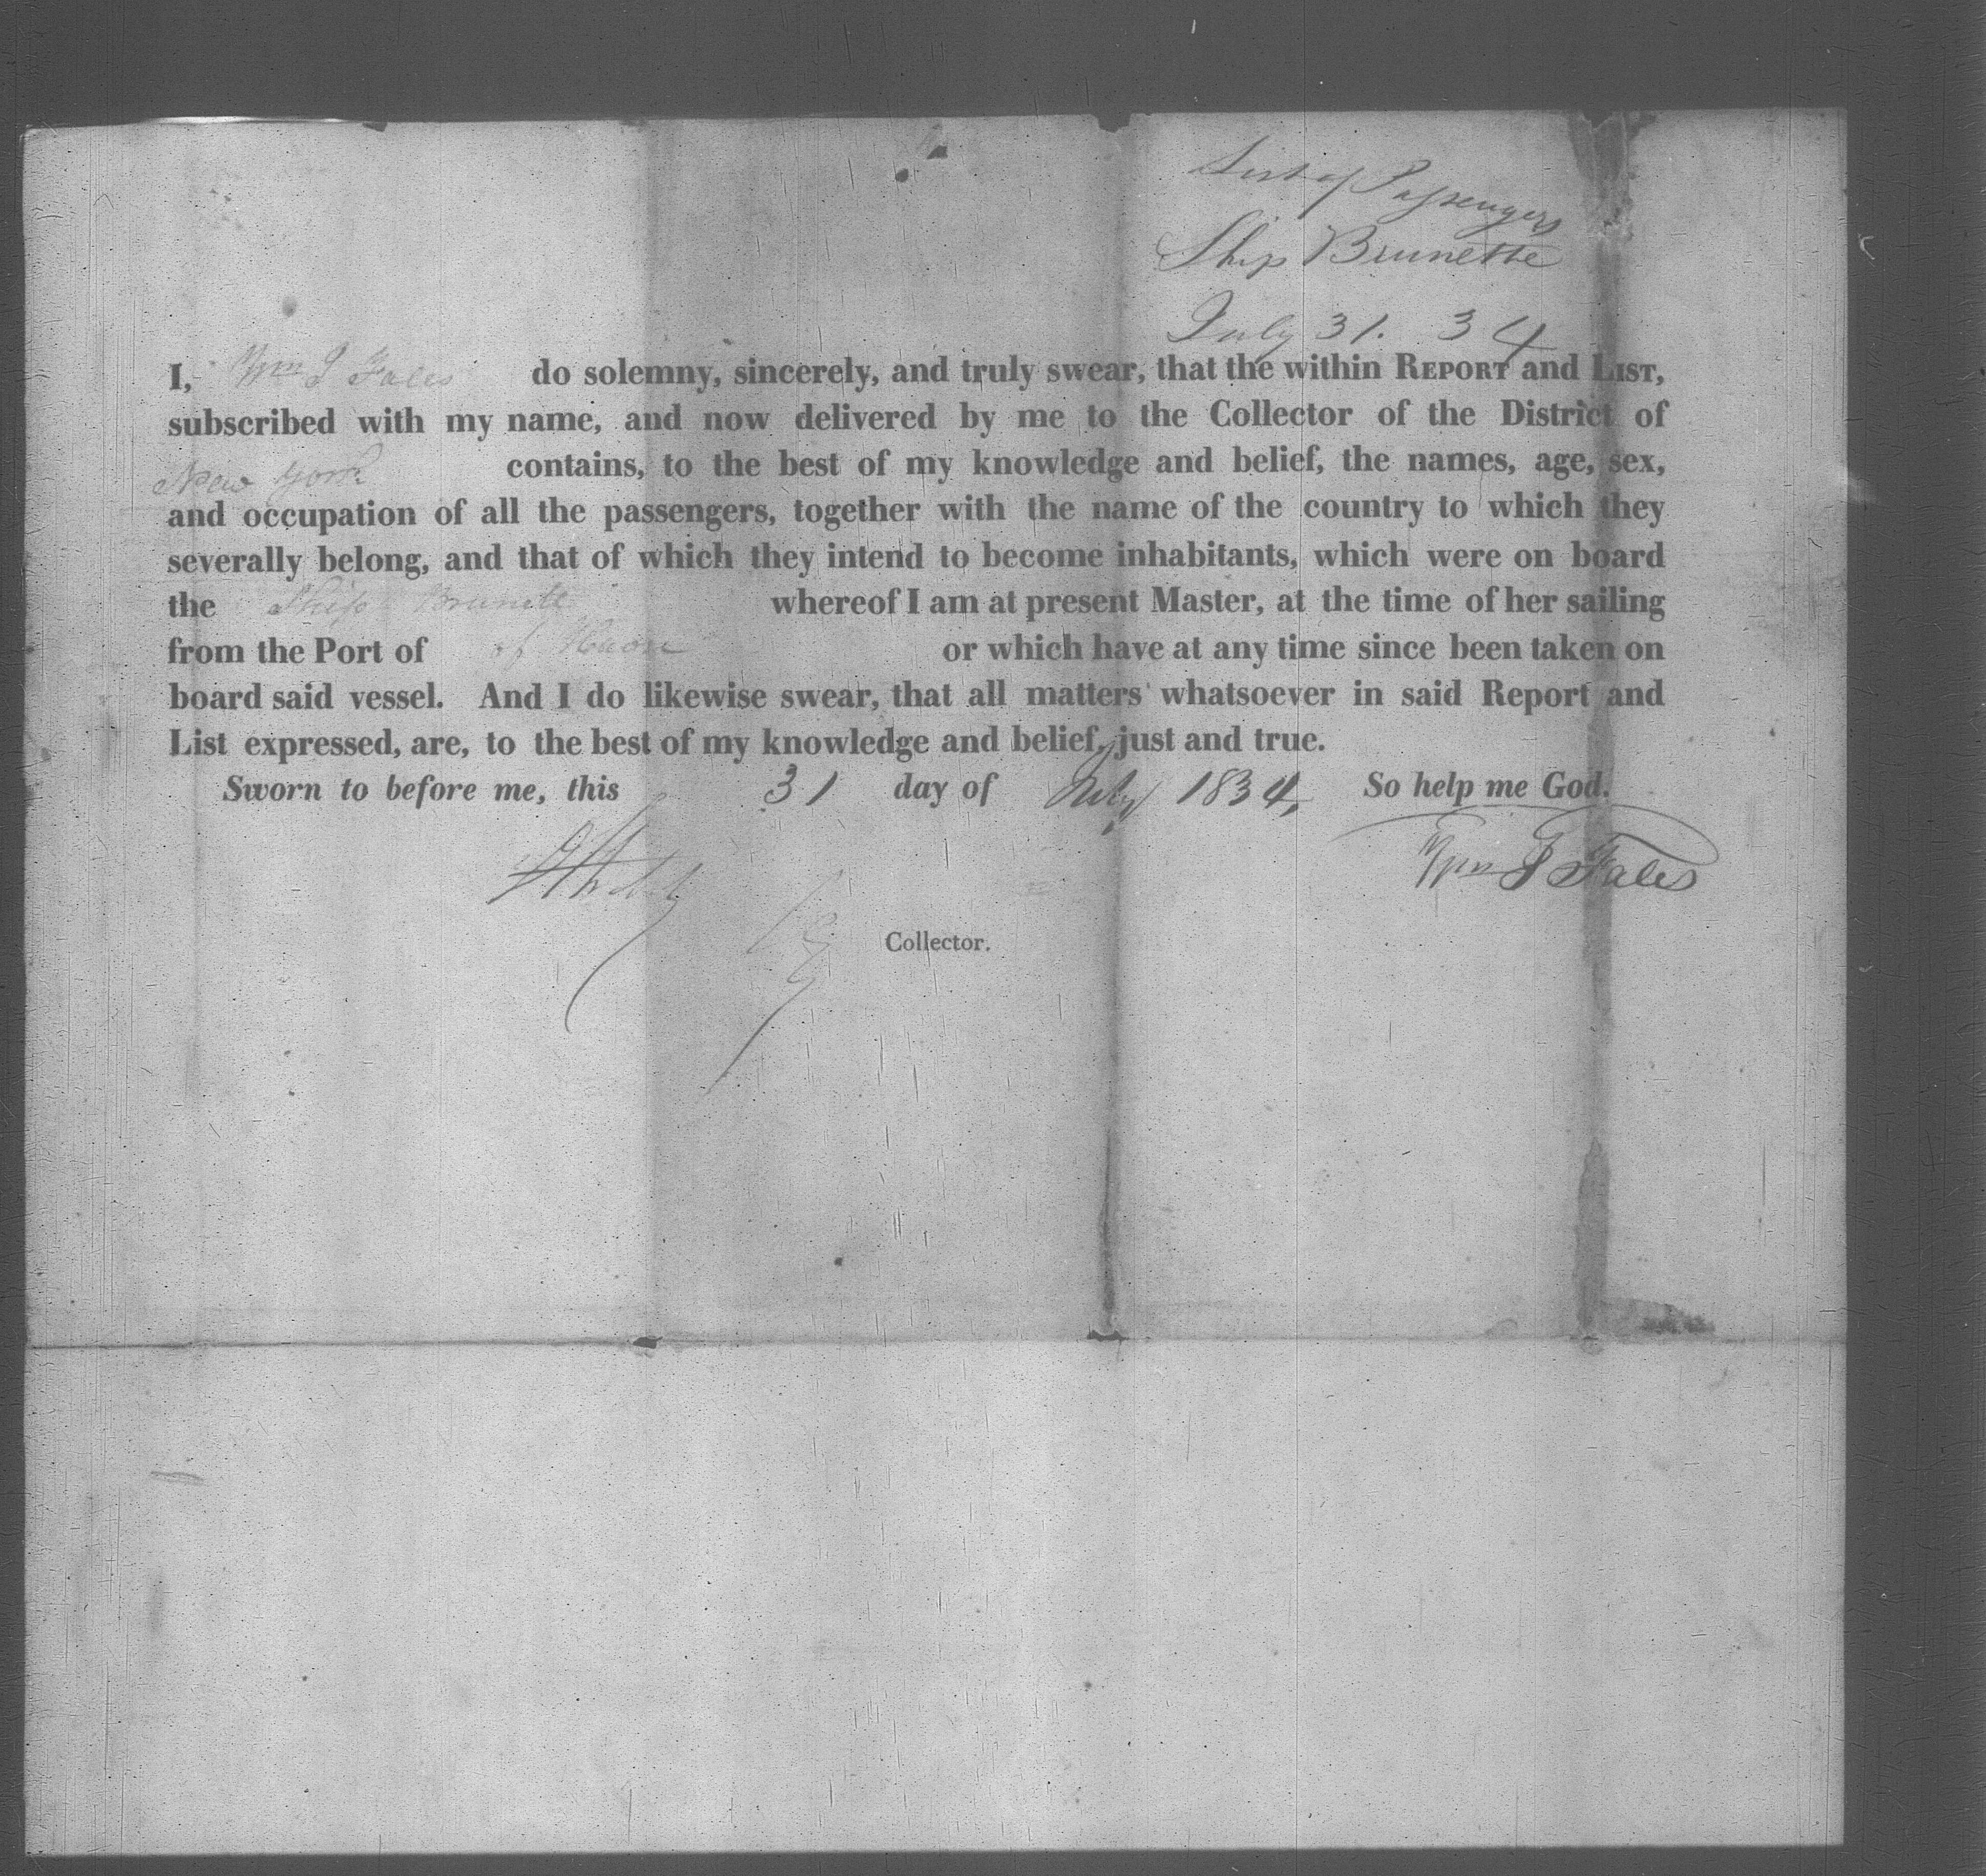 List of Passengers
Ship Brunette
July 31. 34
I, Wm J Fales do solemny, sincerely, and truly swear, that the within REPORT and LIST,
subscribed with my name, and now delivered by me to the Collector of the District of
New York contains, to the best of my knowledge and belief, the names, age, sex,
and occupation of all the passengers, together with the name of the country to which they
severally belong, and that of which they intend to become inhabitants, which were on board
the Ship Brunette whereof I am at present Master, at the time of her sailing
from the Port of of or which have at any time since been taken on
board said vessel. And I do likewise swear, that all matters whatsoever in said Report and
List expressed, are, to the best of my knowledge and belief, just and true.
Sworn to before me, this 31 day of July 1834, So help me God.
Wm J Fales
Collector.